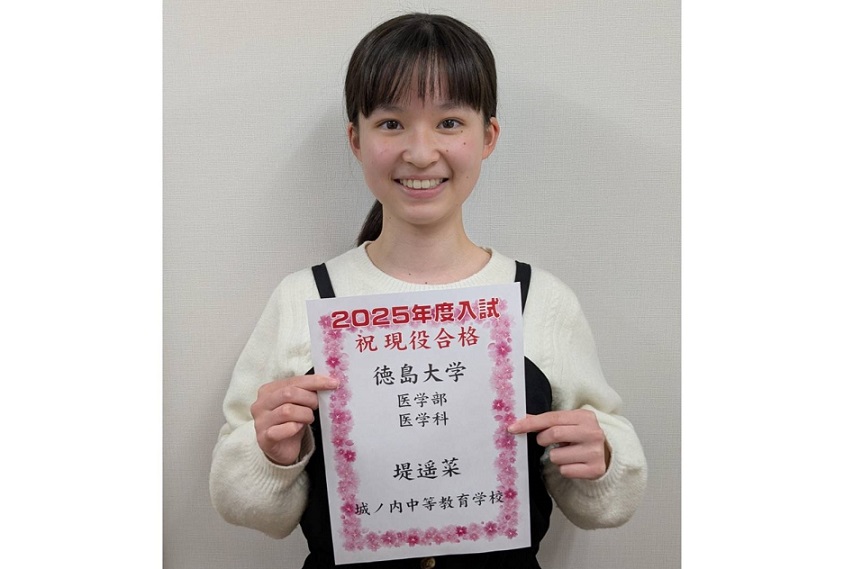 2025年度入試
祝 現役合格
徳島大学
医学部
医学科
堤遥菜
城ノ内中等教育学校